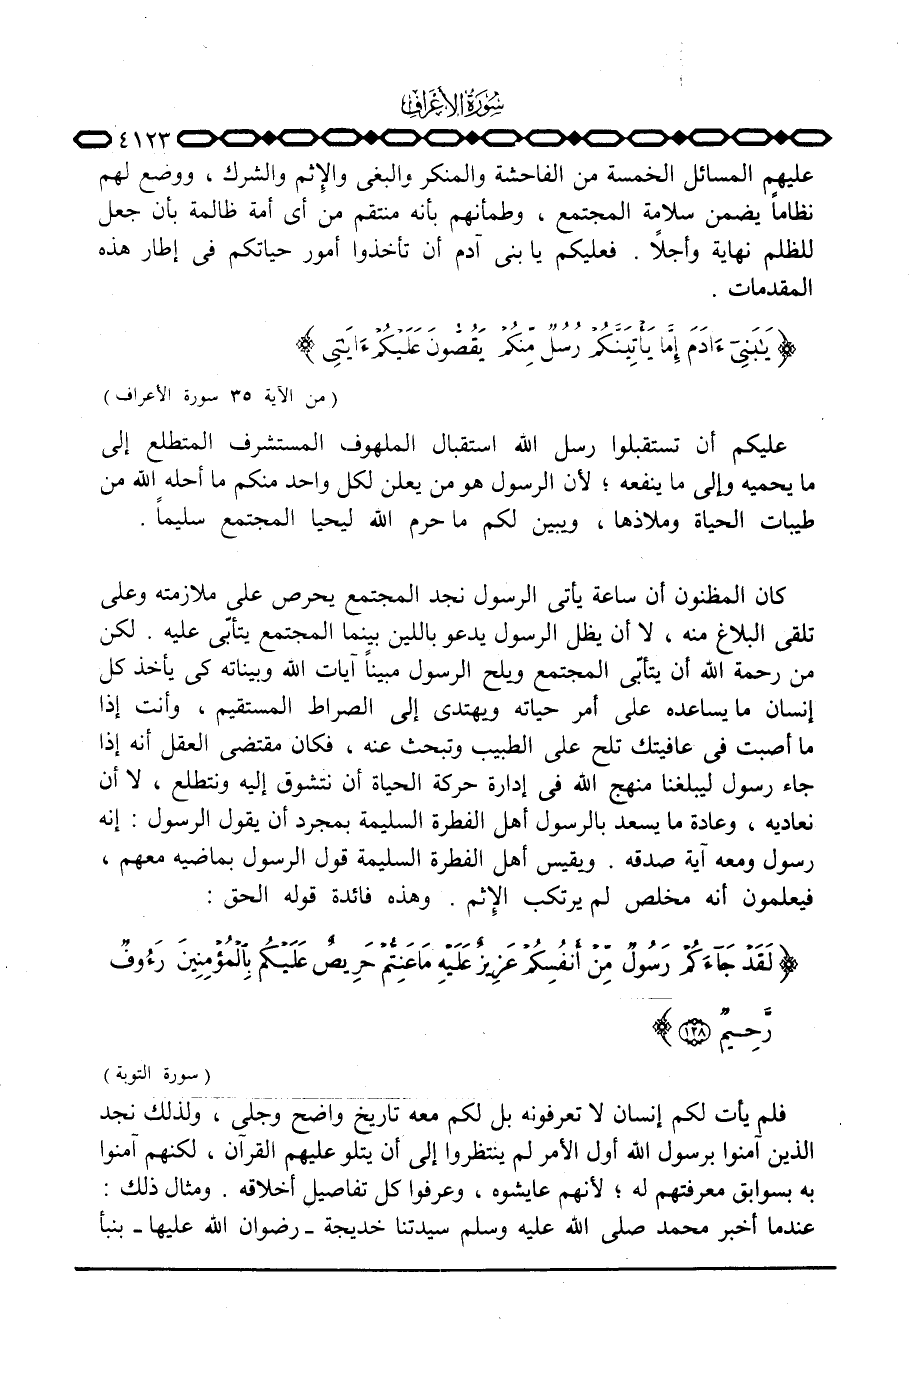 سورة الأعراف
٤١٢٣
عليهم المسائل الخمسة من الفاحشة والمنكر والبغى والإثم والشرك ، ووضع لهم
نظاماً يضمن سلامة المجتمع ، وطمأنهم بأنه منتقم من أى أمة ظالمة بأن جعل
للظلم نهاية وأجلاً . فعليكم يا بنى آدم أن تأخذوا أمور حياتكم فى إطار هذه
المقدمات .
﴿ يَٰبَنِىٓ ءَادَمَ إِمَّا يَأْتِيَنَّكُمْ رُسُلٌ مِّنكُمْ يَقُصُّونَ عَلَيْكُمْ ءَايَٰتِى ﴾
( من الآية ٣٥ سورة الأعراف )
عليكم أن تستقبلوا رسل الله استقبال الملهوف المستشرف المتطلع إلى
ما يحميه وإلى ما ينفعه ؛ لأن الرسول هو من يعلن لكل واحد منكم ما أحله الله من
طيبات الحياة وملاذها ، ويبين لكم ما حرم الله ليحيا المجتمع سليماً .
كان المظنون أن ساعة يأتى الرسول نجد المجتمع يحرص على ملازمته وعلى
تلقى البلاغ منه ، لا أن يظل الرسول يدعو باللين بينما المجتمع يتأبّى عليه . لكن
من رحمة الله أن يتأبّى المجتمع ويلح الرسول مبيناً آيات الله وبيناته كى يأخذ كل
إنسان ما يساعده على أمر حياته ويهتدى إلى الصراط المستقيم ، وأنت إذا
ما أصبت فى عافيتك تلح على الطبيب وتبحث عنه ، فكان مقتضى العقل أنه إذا
جاء رسول ليبلغنا منهج الله فى إدارة حركة الحياة أن نتشوق إليه ونتطلع ، لا أن
نعاديه ، وعادة ما يسعد بالرسول أهل الفطرة السليمة بمجرد أن يقول الرسول : إنه
رسول ومعه آية صدقه . ويقيس أهل الفطرة السليمة قول الرسول بماضيه معهم ،
فيعلمون أنه مخلص لم يرتكب الإثم . وهذه فائدة قوله الحق :
﴿ لَقَدْ جَآءَكُمْ رَسُولٌ مِّنْ أَنفُسِكُمْ عَزِيزٌ عَلَيْهِ مَا عَنِتُّمْ حَرِيصٌ عَلَيْكُم بِٱلْمُؤْمِنِينَ رَءُوفٌ
رَّحِيمٌ ١٢٨ ﴾
( سورة التوبة )
فلم يأت لكم إنسان لا تعرفونه بل لكم معه تاريخ واضح وجلى ، ولذلك نجد
الذين آمنوا برسول الله أول الأمر لم ينتظروا إلى أن يتلو عليهم القرآن ، لكنهم آمنوا
به بسوابق معرفتهم له ؛ لأنهم عايشوه ، وعرفوا كل تفاصيل أخلاقه . ومثال ذلك :
عندما أخبر محمد صلى الله عليه وسلم سيدتنا خديجة ـ رضوان الله عليها ـ بنبأ